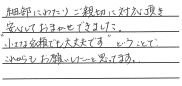 細部にわたりご親切に対応頂き
安心しておまかせできました。
"小さな会様でも大丈夫です"ということで、
これからもお願いしたいと思ってます。